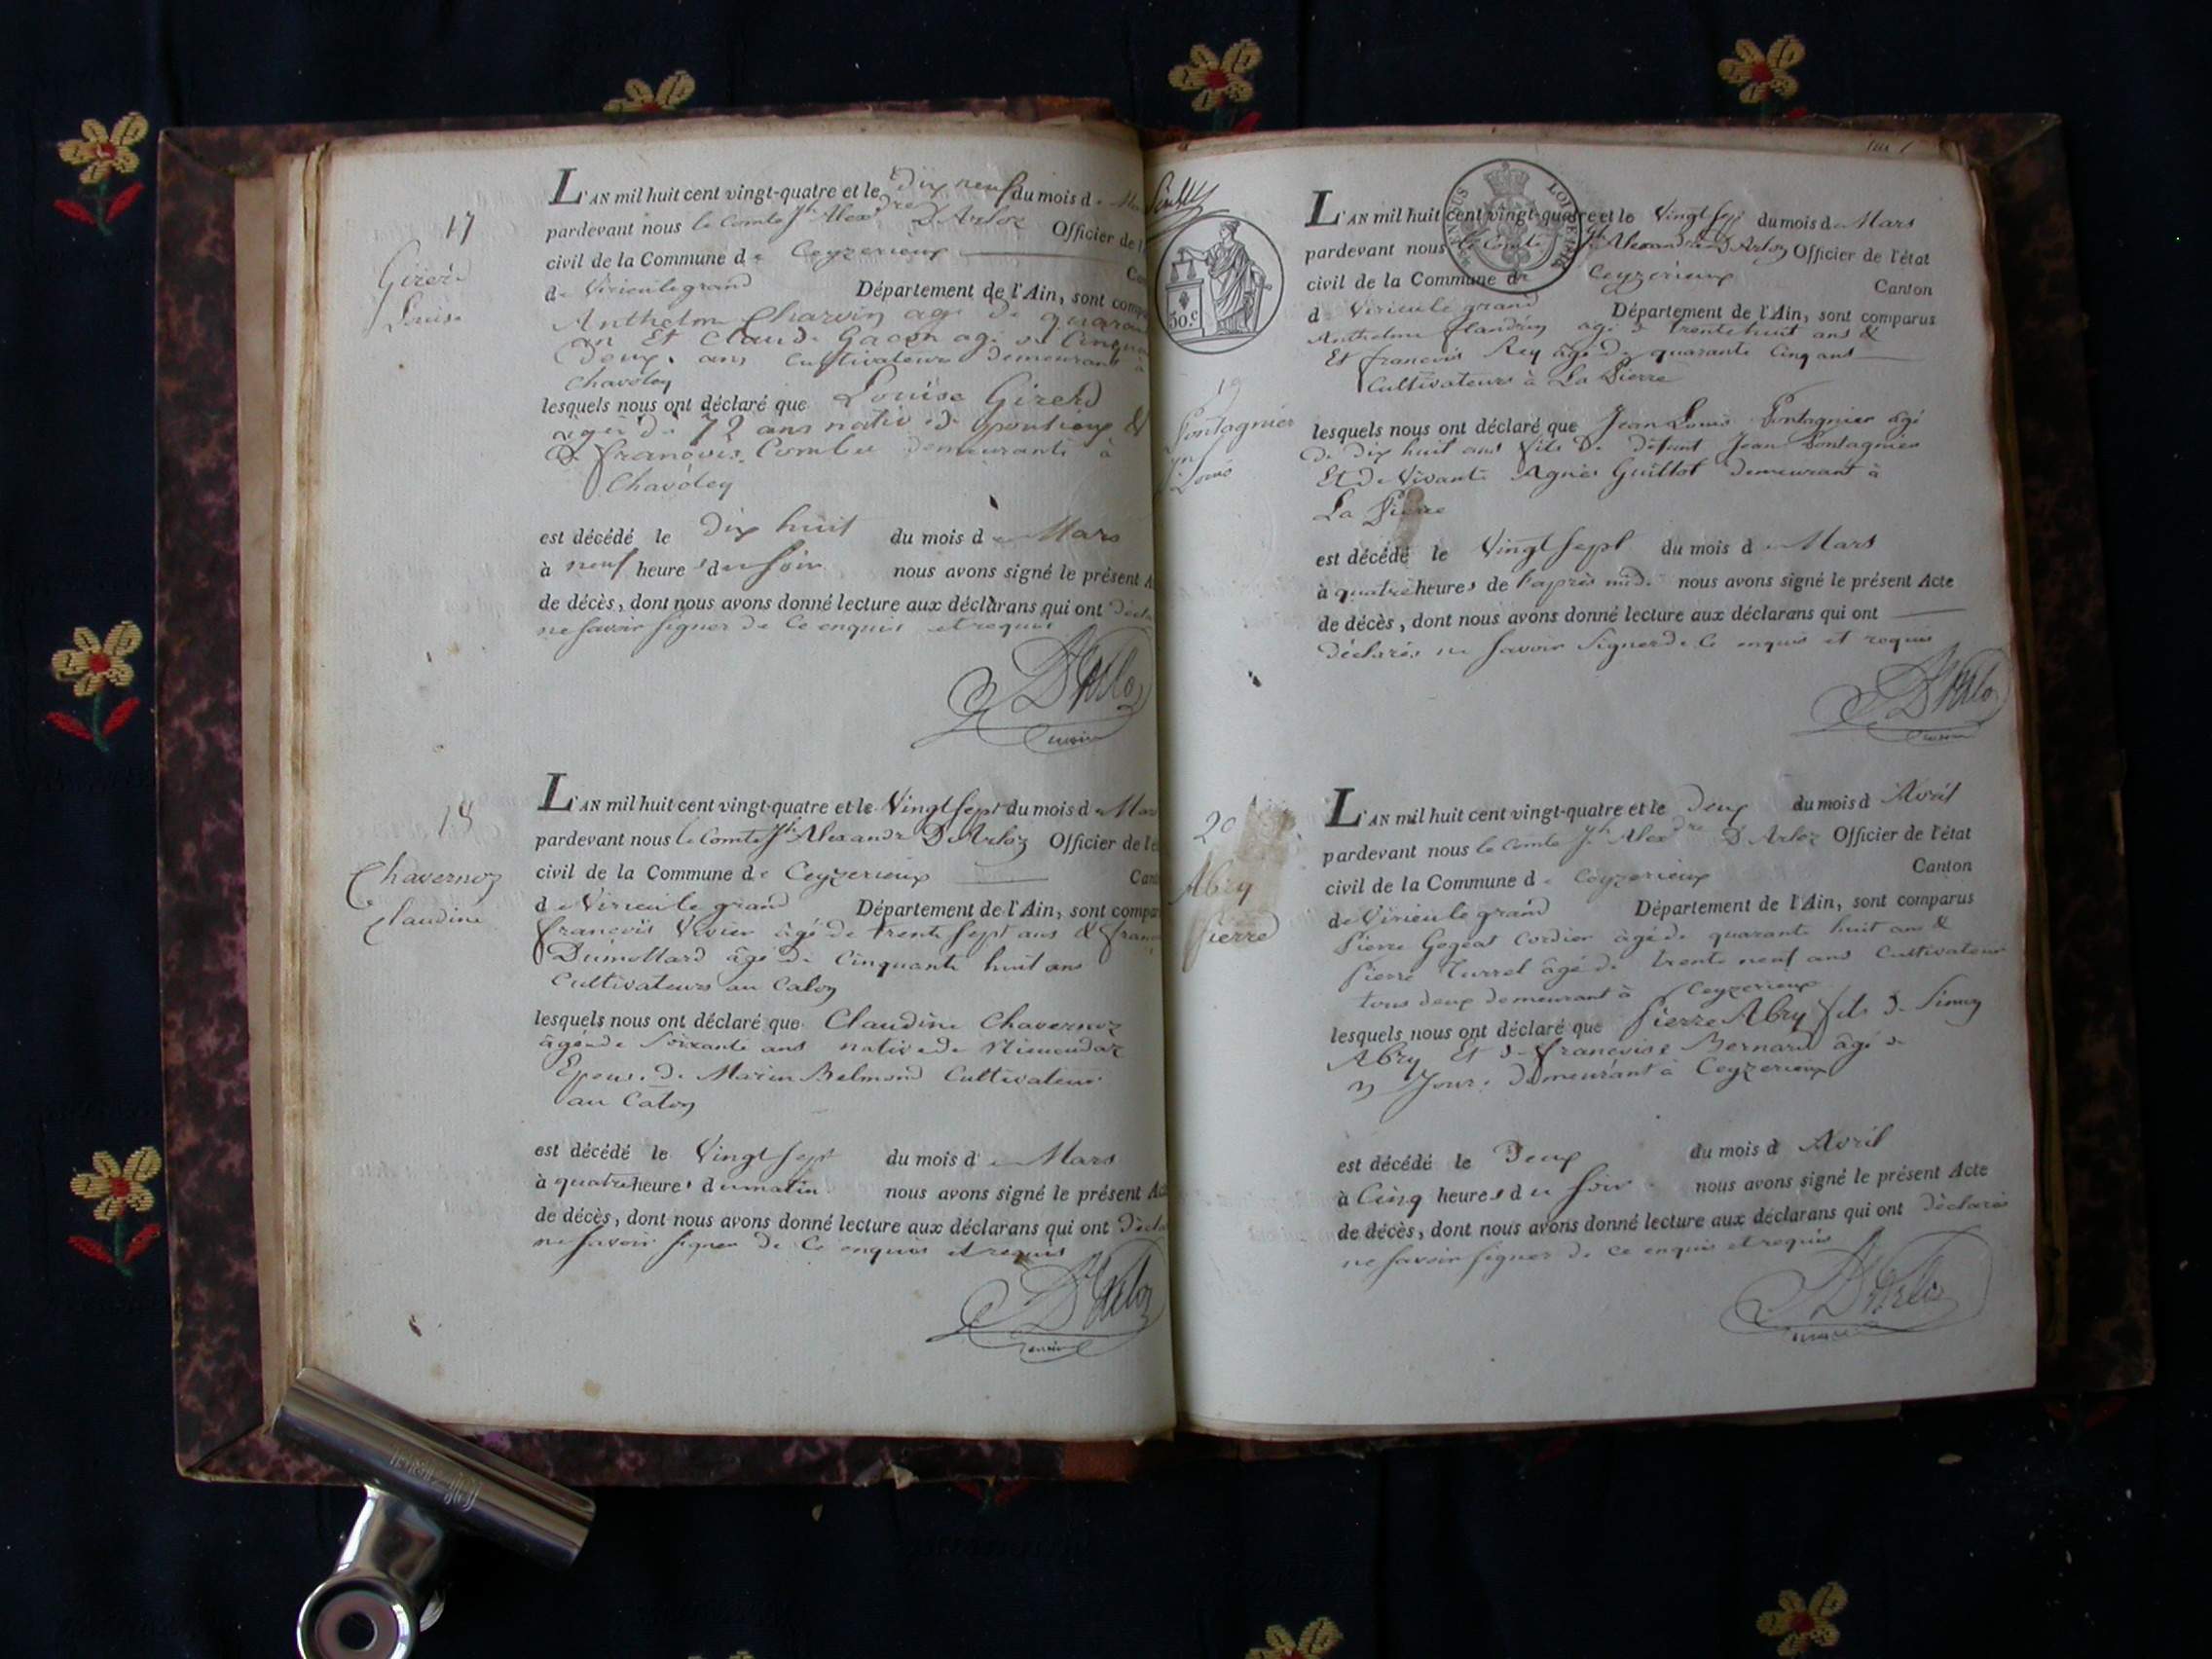 17
Girerd
Louise
L'AN mil huit cent vingt-quatre et le dix neuf du mois de
pardevant nous le Comte Jh Alexdre D'Arloz Officier de l
civil de la Commune de Ceyzerieux
de Virieu le grand Département de l'Ain, sont compa
Anthelme Charvin agé de
an Et Claude Gacon agé de
deux ans Cultivateurs demeurant à
Chavoley
lesquels nous ont déclaré que Louise Girerd
agée de 72 ans native de &
de françois Combet demeurante à
Chavoley
est décédé le dix huit du mois de Mars
à neuf heures du soir nous avons signé le présent A
de décès, dont nous avons donné lecture aux déclarans qui ont
ne savoir signer de ce enquis et requis
D'Arloz
maire
18
Chavernoz
Claudine
L'AN mil huit cent vingt-quatre et le Vingt sept du mois de Mars
pardevant nous le Comte Jh Alexandre D'Arloz Officier de l'é
civil de la Commune de Ceyzerieux Cant
de Virieu le grand Département de l'Ain, sont compar
françois Vivier âgé de trente sept ans &
Dumollard âgé de Cinquante huit ans
Cultivateurs au Caloz
lesquels nous ont déclaré que Claudine Chavernoz
âgée de Soixante ans native de
Epouse de Marin Belmond Cultivateur
au Caloz
est décédé le Vingt sept du mois de Mars
à quatre heures du matin nous avons signé le présent Ac
de décès, dont nous avons donné lecture aux déclarans qui ont
ne savoir signer de ce enquis et requis
D'Arloz
maire
50.c
19
Pontagnier
Jn
Louis
L'AN mil huit cent vingt-quatre et le Vingt sept du mois de Mars
pardevant nous le Comte Jh Alexandre D'Arloz Officier de l'état
civil de la Commune de Ceyzerieux Canton
de Virieu le grand Département de l'Ain, sont comparus
Anthelme flandrin agé de trente huit ans &
Et francois Rey âgé de quarante Cinq ans
Cultivateurs à La Pierre
lesquels nous ont déclaré que Jean Louis Pontagnier âgé
de dix huit ans fils de défunt Jean Pontagnier
Et de Vivante Agnès Guillot demeurant à
La Pierre
est décédé le Vingt sept du mois de Mars
à quatre heures de l'après midi nous avons signé le présent Acte
de décès, dont nous avons donné lecture aux déclarans qui ont
déclarés ne savoir Signer de Ce enquis et requis
D'Arloz
maire
20
Abry
Pierre
L'AN mil huit cent vingt-quatre et le deux du mois d Avril
pardevant nous le Comte Jh Alexdre D'Arloz Officier de l'état
civil de la Commune de Ceyzerieux Canton
de Virieu le grand Département de l'Ain, sont comparus
Pierre Gogeat Cordier âgé de quarante huit ans &
Pierre Turrel âgé de trente neuf ans Cultivateur
tous deux demeurant à Ceyzerieux
lesquels nous ont déclaré que Pierre Abry fils de
Abry Et de françoise Bernard âgé de
Jours demeurant à Ceyzerieux
est décédé le Deux du mois d Avril
à Cinq heures du soir nous avons signé le présent Acte
de décès, dont nous avons donné lecture aux déclarans qui ont déclarés
ne savoir signer de ce enquis et requis
D'Arloz
maire